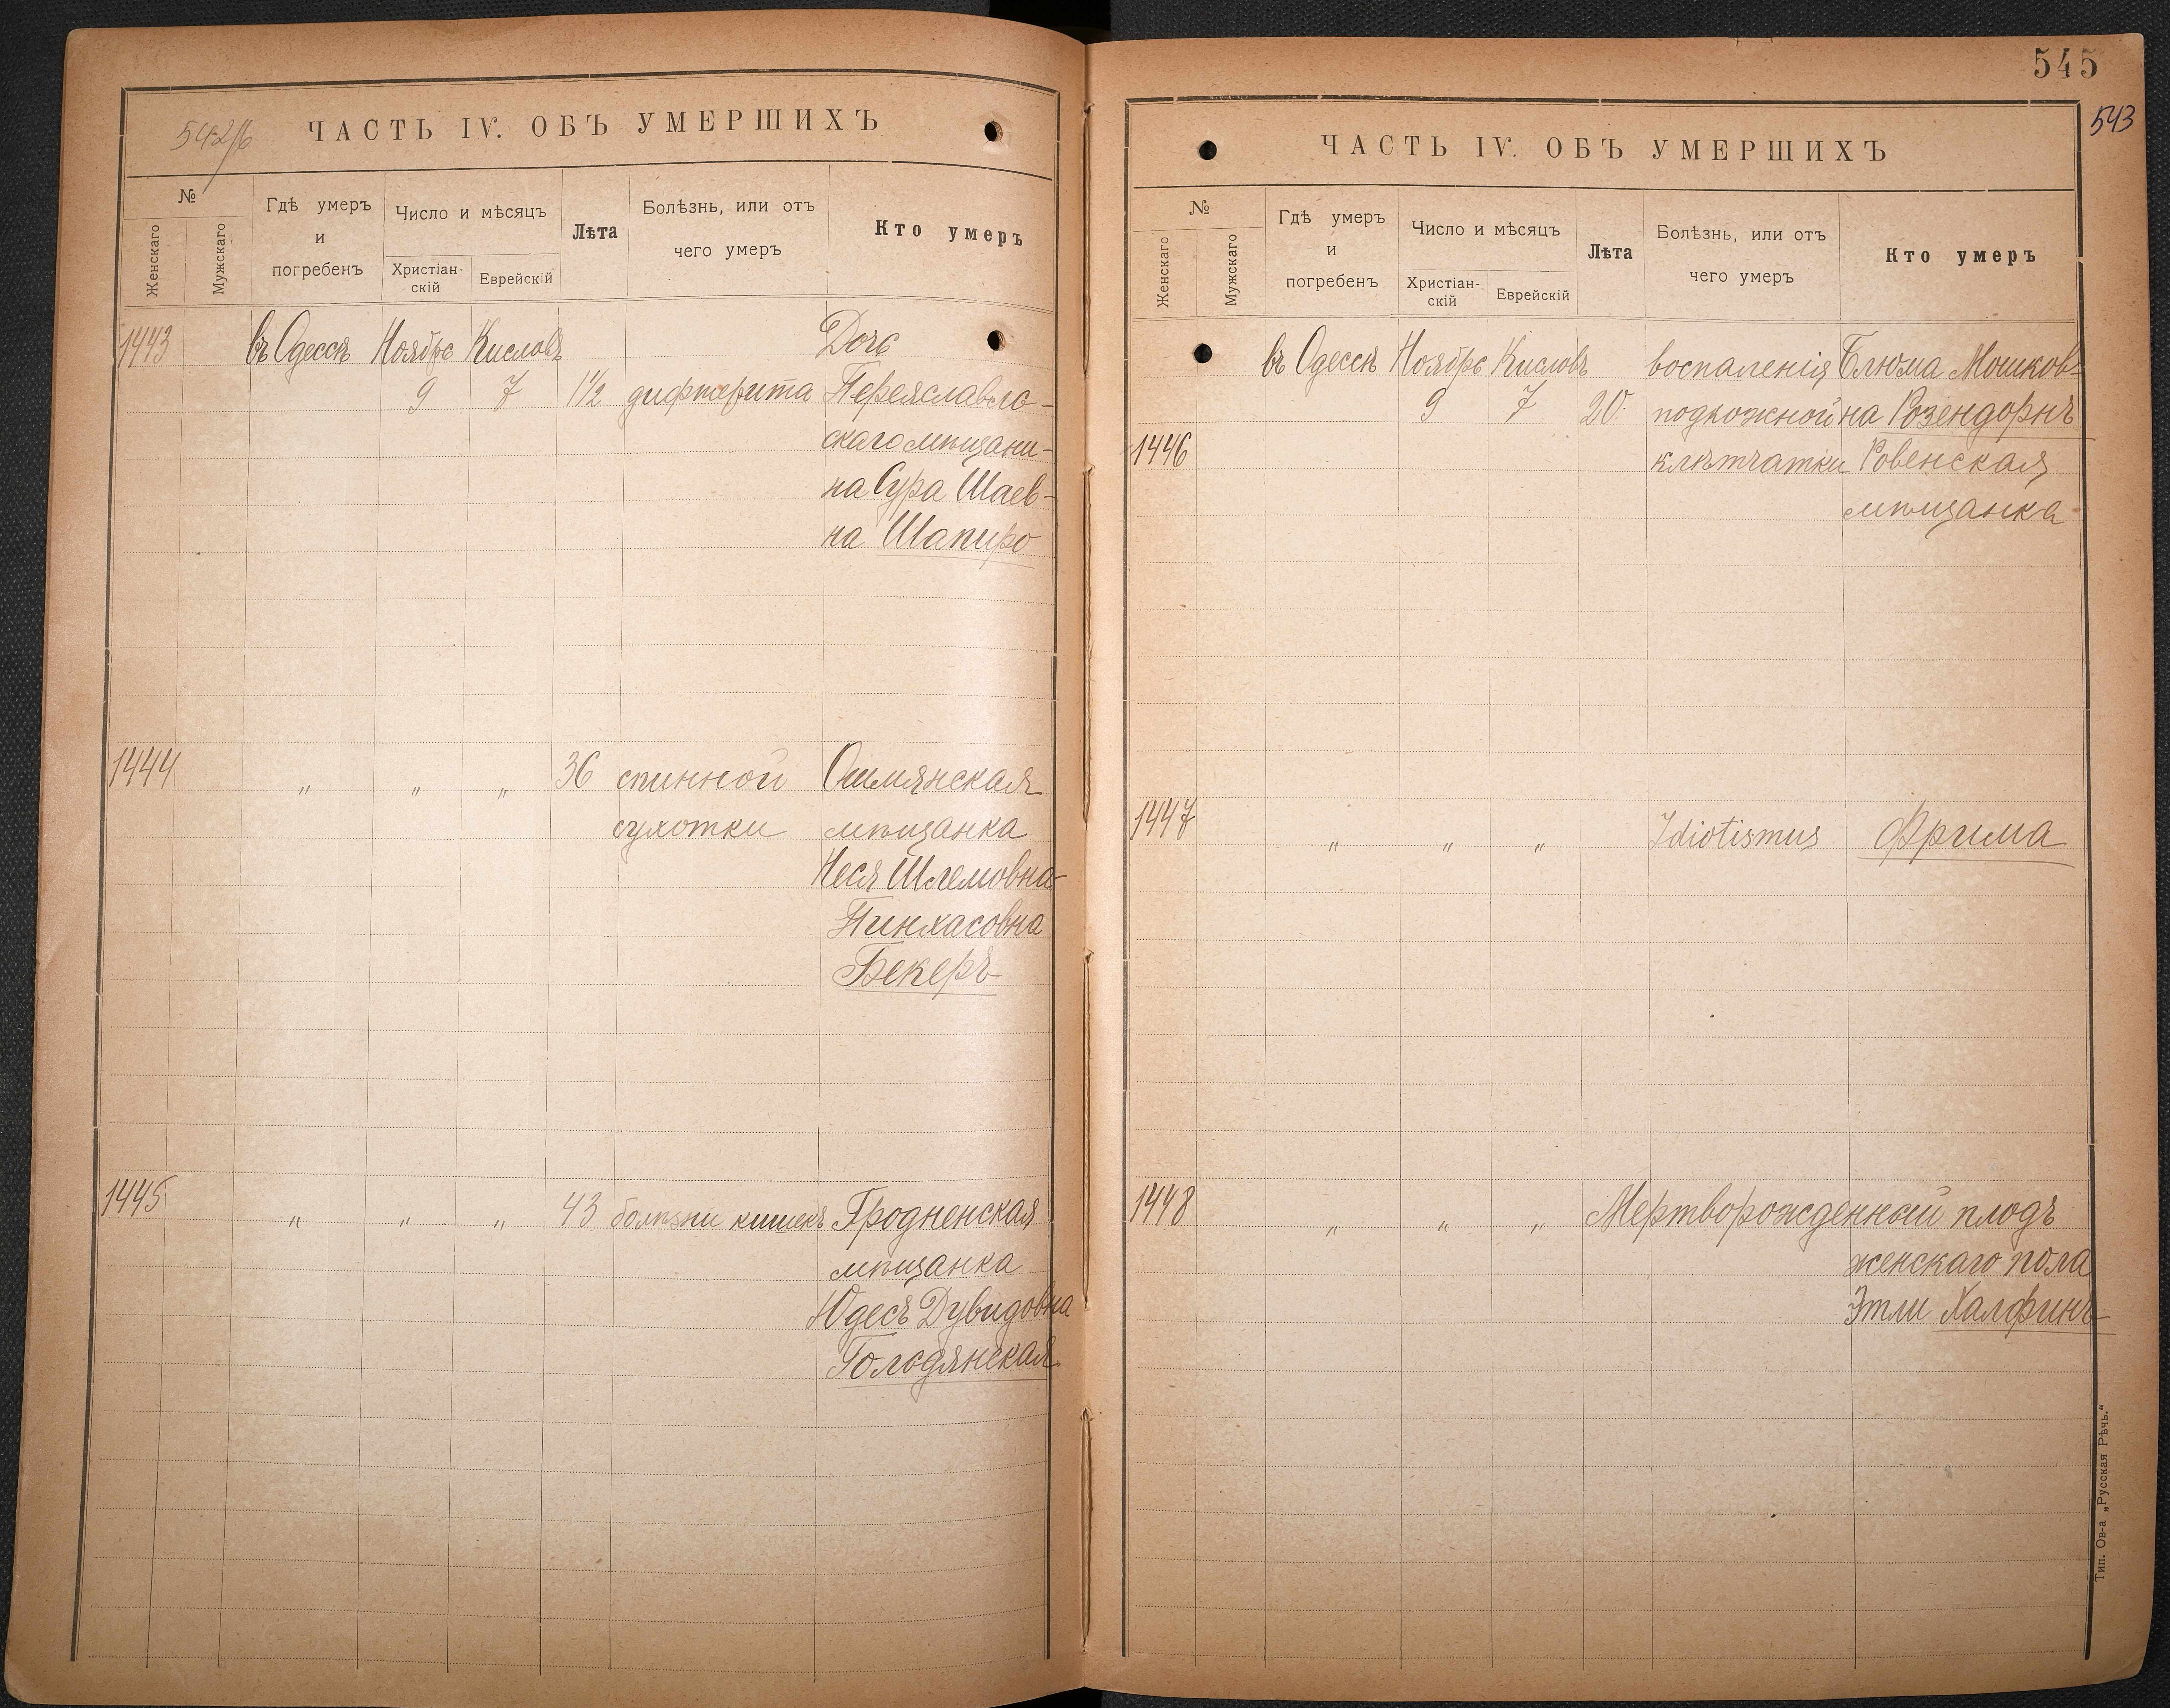 542/б
ЧАСТЬ IV. ОБЪ УМЕРШИХЪ
№
Женскаго
Мужскаго
Гдѣ умеръ
и
погребенъ
Число и мѣсяцъ
Христіан-
скій
Еврейскій
Лѣта
Болѣзнь, или отъ
чего умеръ
Кто умеръ
1443 въ Одессѣ Ноябрь Кисловъ Дочь
9 7 1½ дифтерита Переяславло-
скаго мѣщани-
на Сура Шаев-
на Шапиро
1444 " " " 36 спинной Ошмянская
сухотки мѣщанка
Неся Шлемовна-
Пинхасовна
Бекеръ
1445 " " " 43 болѣзни кишекъ Гродненская
мѣщанка
Юдесъ Дувидовна
Голодянская
545
543
ЧАСТЬ IV. ОБЪ УМЕРШИХЪ
№
Женскаго
Мужскаго
Гдѣ умеръ
и
погребенъ
Число и мѣсяцъ
Христіан-
скій
Еврейскій
Лѣта
Болѣзнь, или отъ
чего умеръ
Кто умеръ
въ Одессѣ Ноябрь Кисловъ воспаленія Блюма Мошков-
9 7 20 подкожной на Розендорнъ
1446 клѣтчатки Ровенская
мѣщанка
1447 " " " Idiotismus Фрима
1448 " " " Мертворожденный плодъ
женскаго пола
Этли Халфинъ
Тип. Ов-а „Русская Рѣчь.“